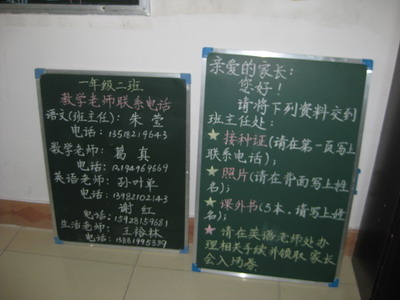 一年级二班
教学老师联系电话
语文(班主任): 朱莹
电话: 13518219643
数学老师: 葛真
电话: 13194969669
英语老师: 孙叶单
电话: 13982102143
谢红
电话: 15928159681
生活老师: 王裕林
电话: 13881995539
亲爱的家长:
您好!
请将下列资料交到
班主任处:
★接种证(请在第一页写上
联系电话);
★照片(请在背面写上姓
名);
★课外书(5本,请写上姓
名);
★请在英语老师处办
理相关手续并领取家长
会入场券